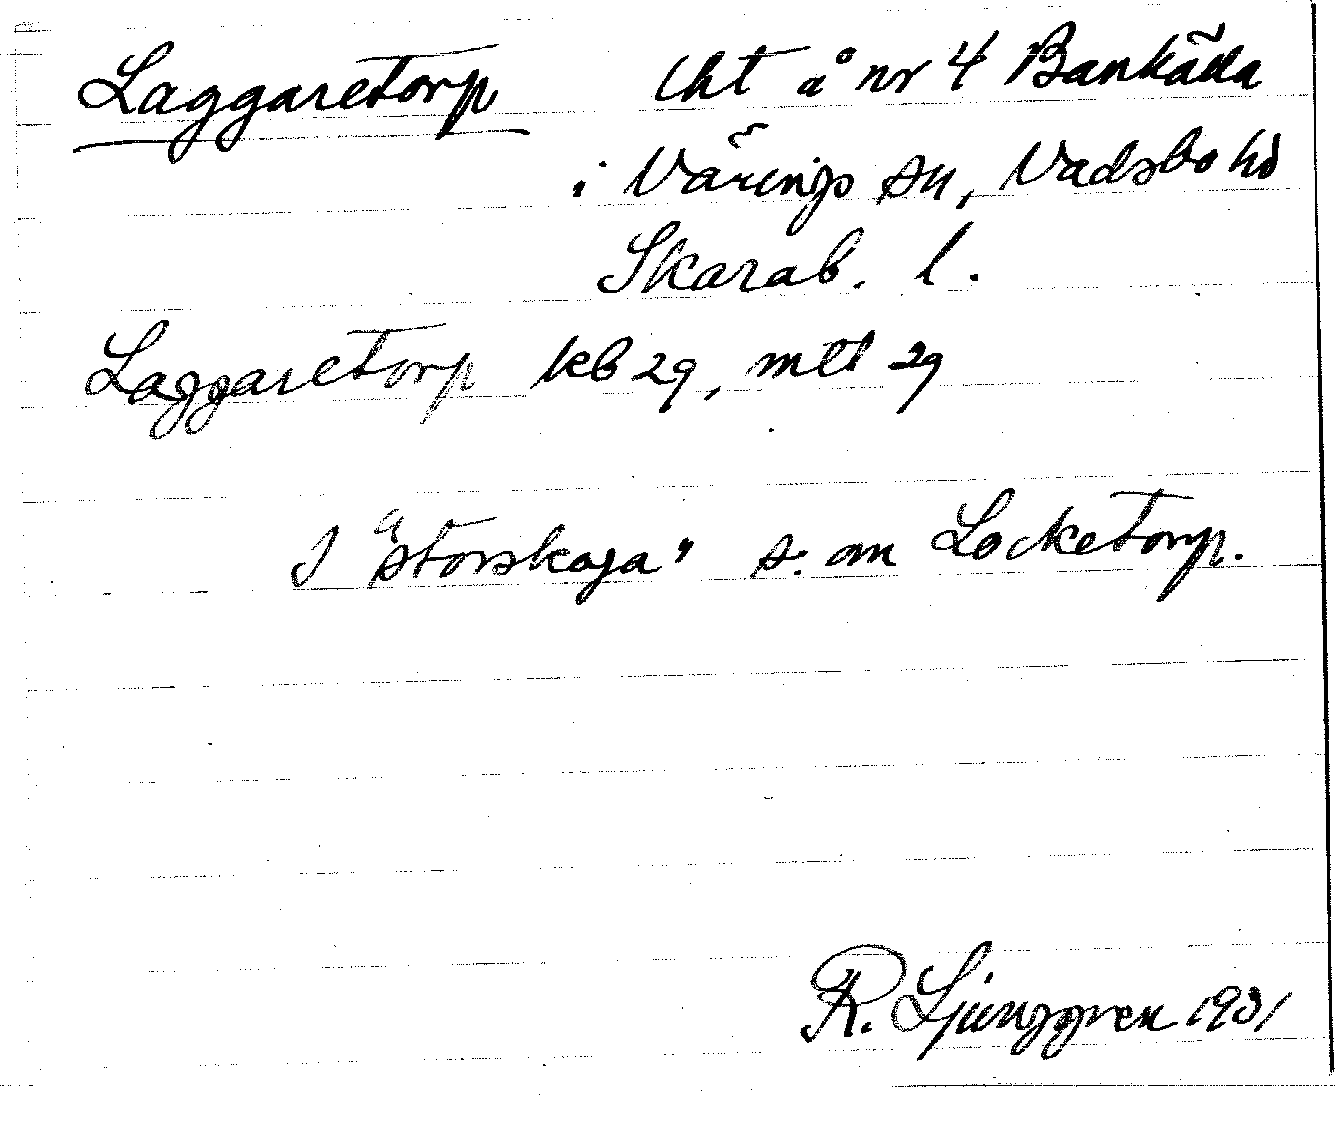 Laggaretorp lht å nr 4 Bankälla
i Värings sn, Vadsbo hd
Skarab. l.
Laggaretorp kb 29, mtl 29
I "storskoga" s. om Locketorp.
R. Ljunggren 1931